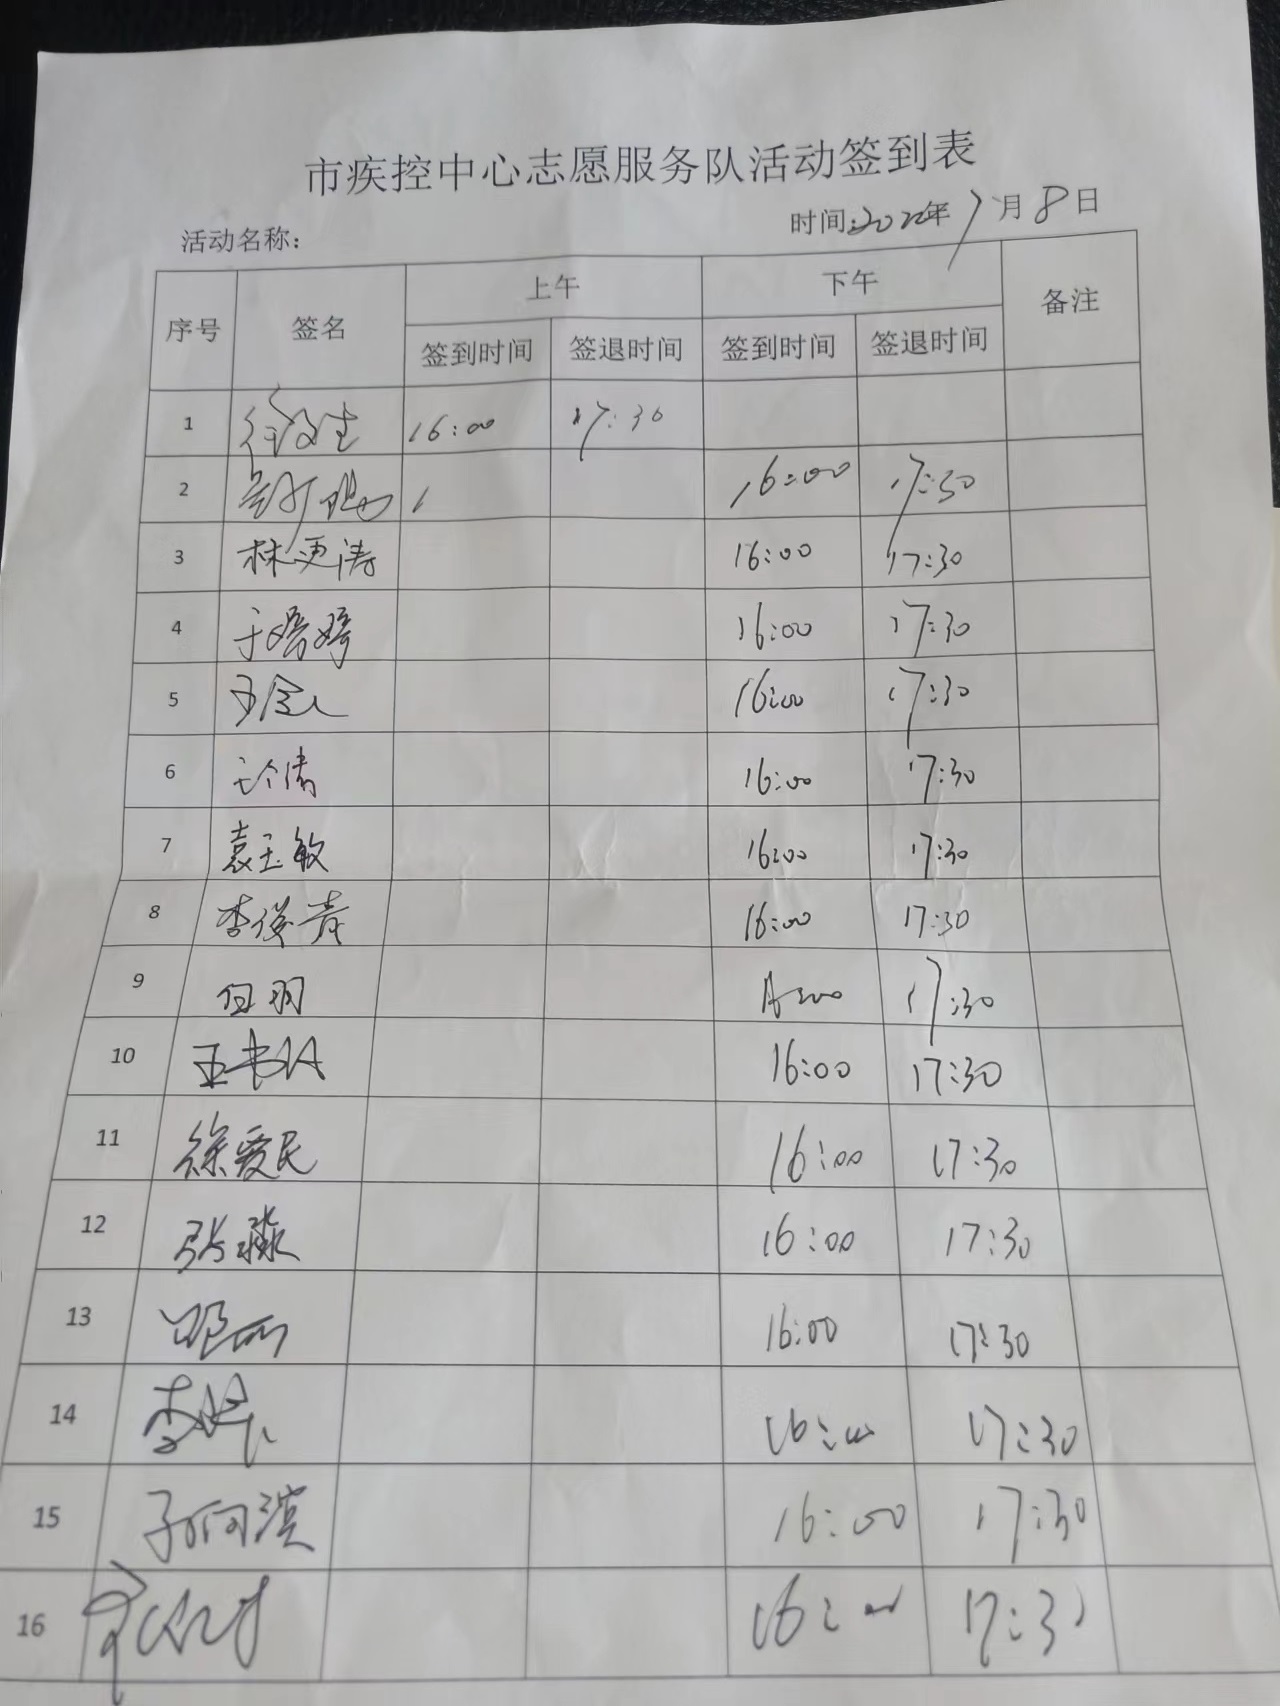 市疾控中心志愿服务队活动签到表
活动名称： 时间:2022年7月8日
序号 签名 上午 下午 备注
签到时间 签退时间 签到时间 签退时间
1 16:00 17:30
2 16:00 17:30
3 林更涛 16:00 17:30
4 于婷婷 16:00 17:30
5 16:00 17:30
6 16:00 17:30
7 袁玉敏 16:00 17:30
8 李俊青 16:00 17:30
9 白羽 17:30
10 16:00 17:30
11 徐爱民 16:00 17:30
12 张淼 16:00 17:30
13 16:00 17:30
14 李 16:00 17:30
15 16:00 17:30
16 16:00 17:30